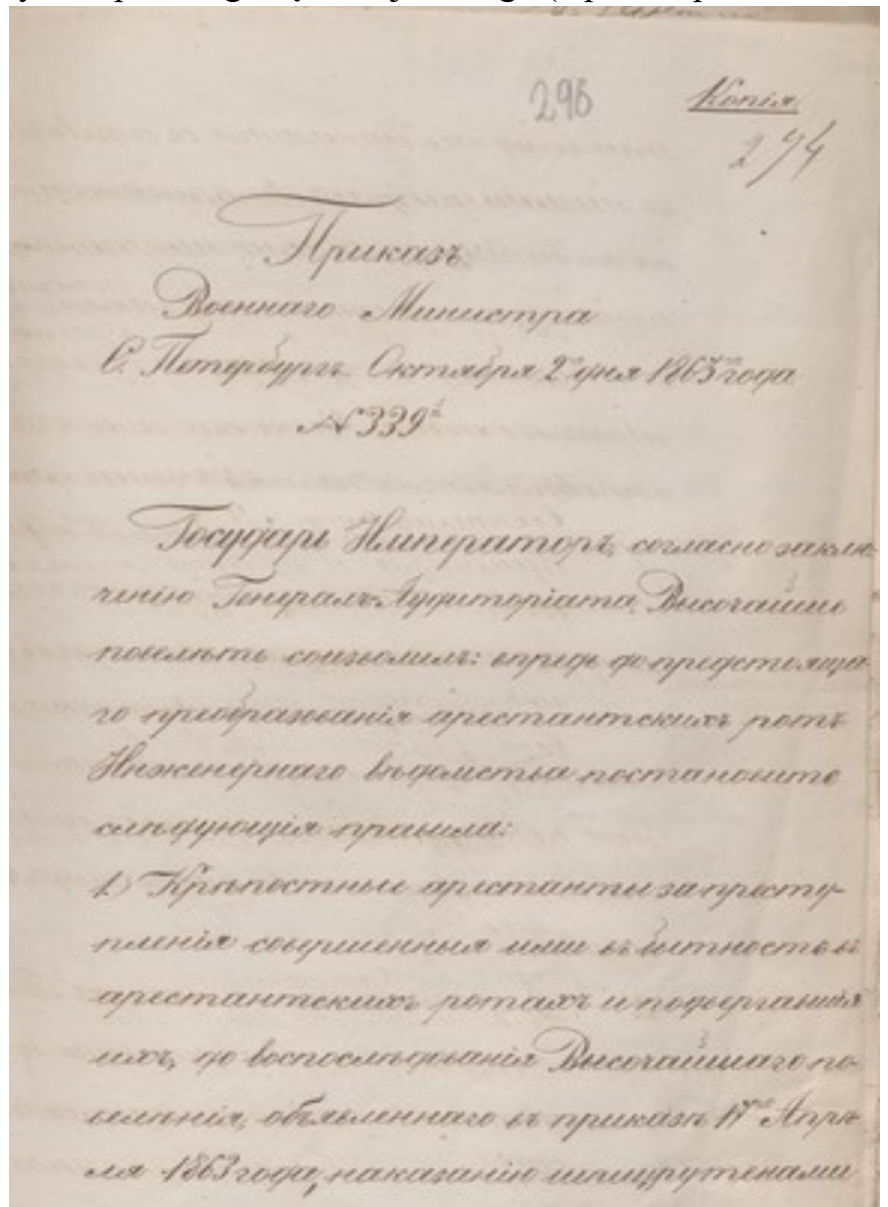 296
Копія
274
Приказъ
Военнаго Министра
С. Петербургъ Октября 2го дня 1863го года
№ 339й
Государь Императоръ, согласно заклю-
ченію Генералъ-Аудиторіата, Высочайше
повелѣть соизволилъ: впредь до предстояща-
го преобразованія арестантскихъ ротъ
Инженернаго вѣдомства постановить
слѣдующія правила:
1.) Крѣпостные арестанты за престу-
пленія совершенныя ими въ бытность въ
арестантскихъ ротахъ и подвергавшія
ихъ, до воспослѣдованія Высочайшаго по-
велѣнія, объявленнаго въ приказѣ 17го Апрѣ-
ля 1863 года, наказанію шпицрутенами